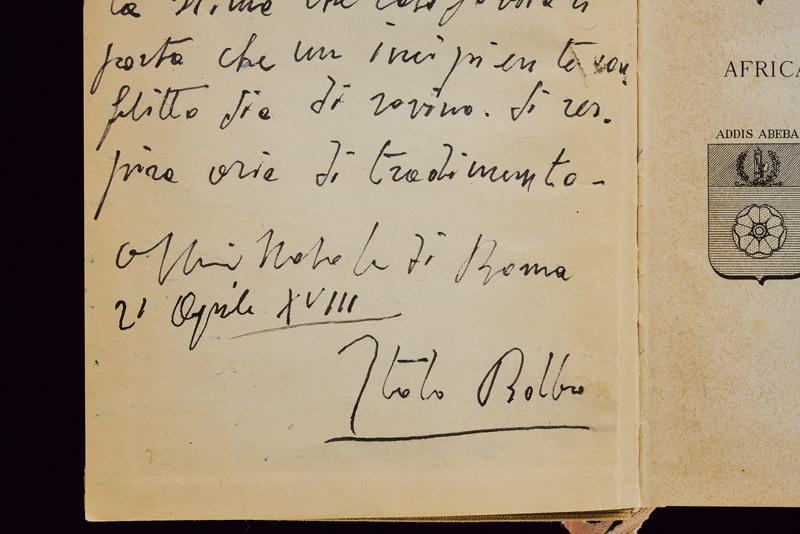 la stima che
porta che un incipiente con
flitto sia di rovina. Si res-
pira aria di tradimento-
Oggi Natale di Roma
21 Aprile XVIII
Italo Balbo
AFRICA
ADDIS ABEBA